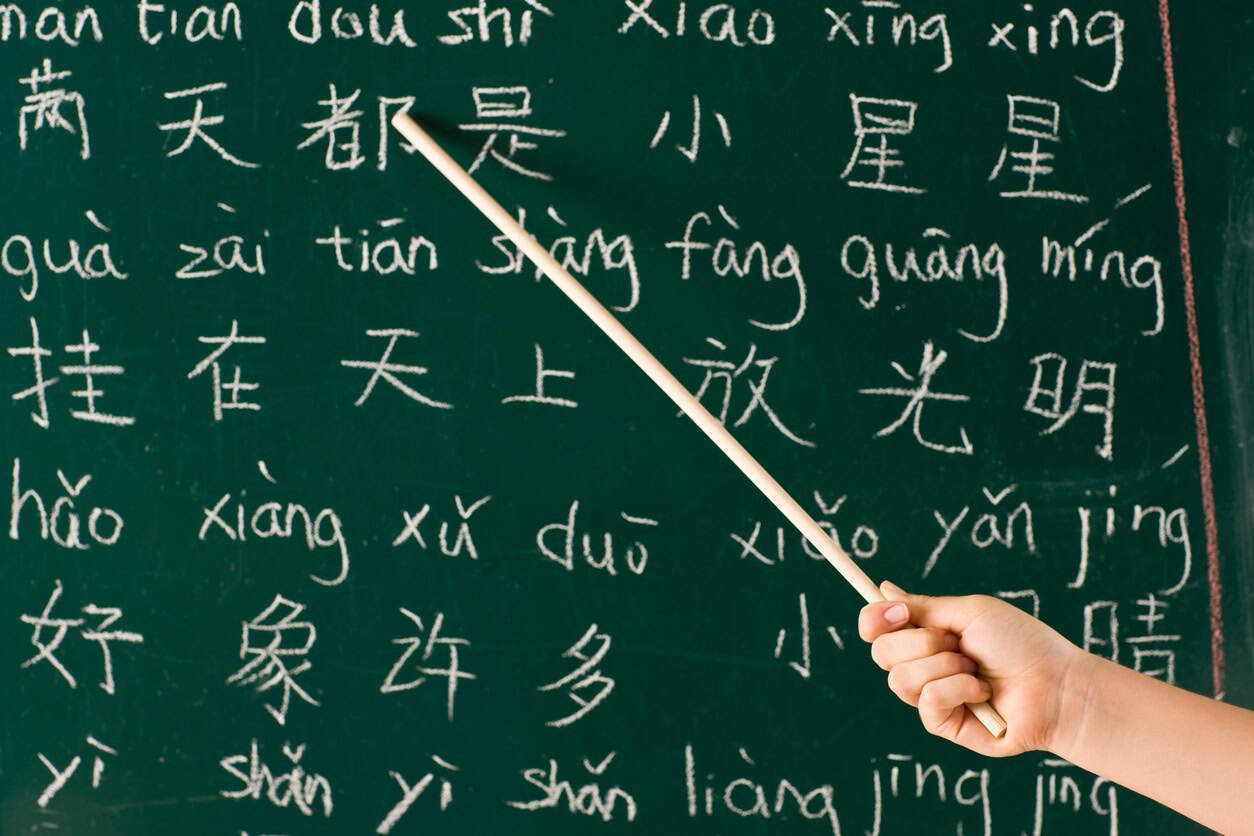 man tian dou shì xiao xīng xing
满 天 都 是 小 星 星
guà zài tiān shàng fàng guāng míng
挂 在 天 上 放 光 明
hǎo xiàng xǔ duō xiǎo yǎn jing
好 象 许 多 小 睛
yī shǎn yī shǎn liàng jīng jīng